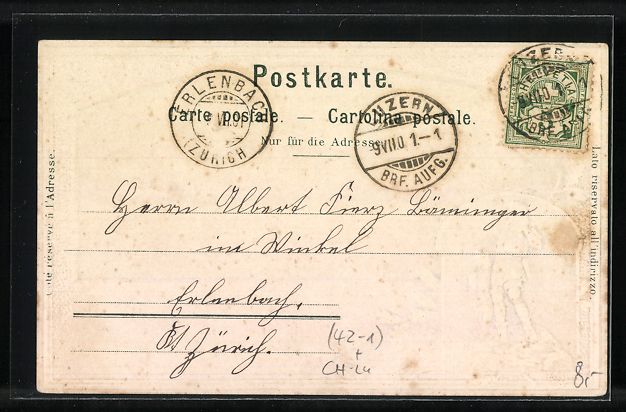 Postkarte.
Carte postale. — Cartolina postale.
Nur für die Adresse.
ERLENBACH
(ZÜRICH)
LUZERN
9 VII 01.–1
BRF. AUFG.
LUZERN
HELVETIA
Côté réservé à l'Adresse.
Lato riservato all'indirizzo.
Herrn Albert Fierz
im Winkel
Erlenbach.
Kt Zürich.
(42-1)
+
CH-LU
8.-